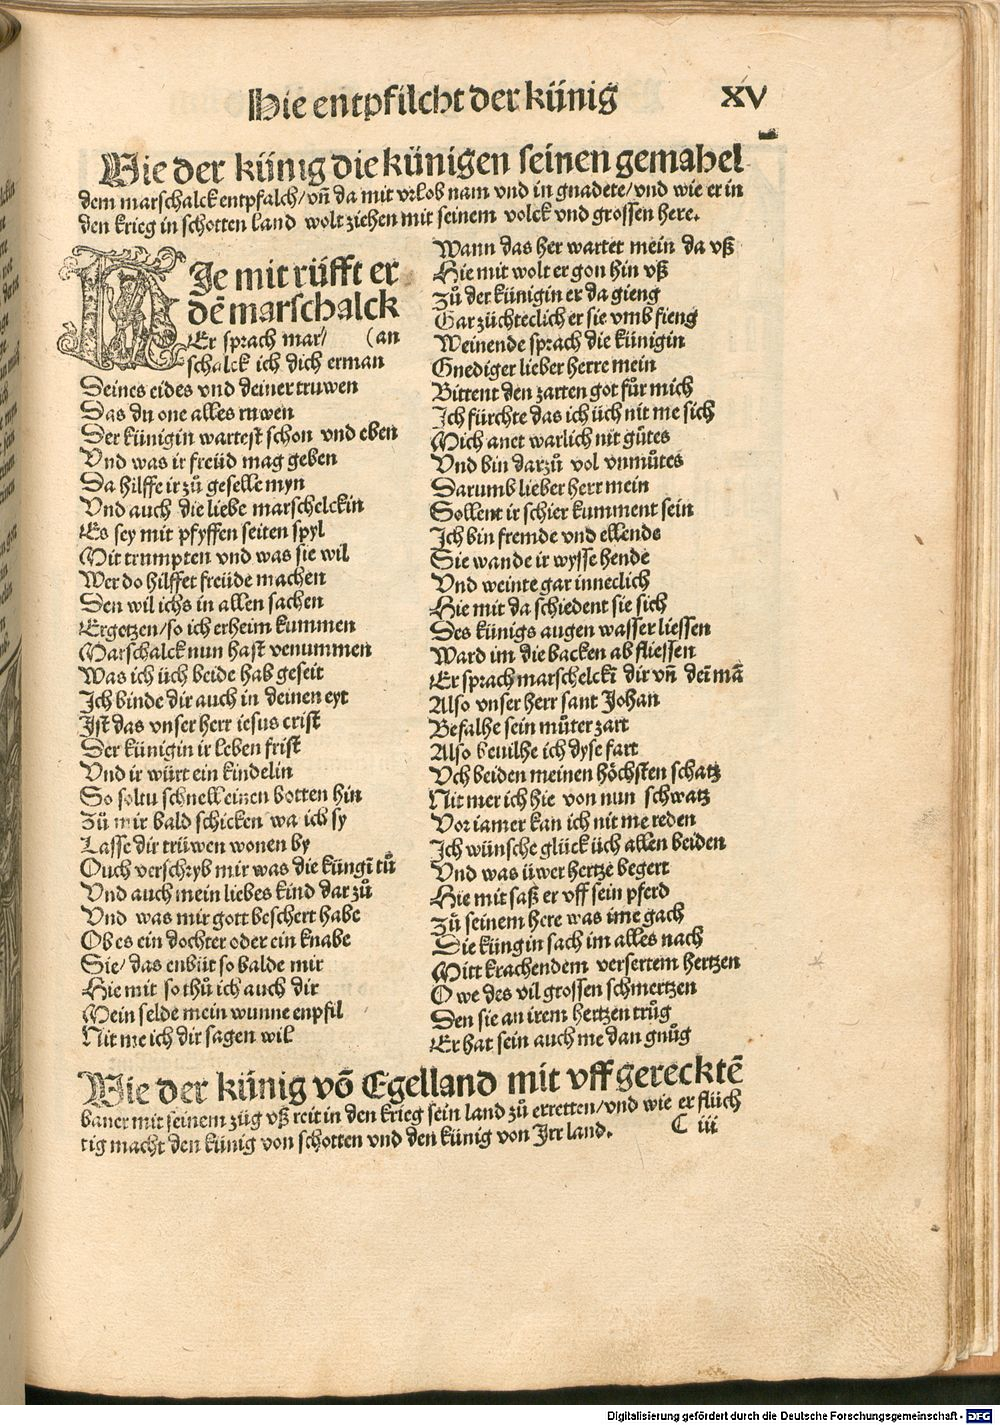 Hie entpfilcht der künig XV
Wie der künig die künigen seinen gemahel
dem marschalck entpfalch/vñ da mit vrlob nam vnd in gnadete/vnd wie er in
den krieg in schotten land wolt ziehen mit seinem volck vnd grossen here.
HJe mit rüfft er
dē marschalck
Er sprach mar/ (an
schalck ich dich erman
Deines eides vnd deiner truwen
Das du one alles ruwen
Der künigin wartest schon vnd eben
Vnd was ir freüd mag geben
Da hilffe ir zů geselle myn
Vnd auch die liebe marschelckin
Es sey mit pfyffen seiten spyl
Mit trumpten vnd was sie wil
Wer do hilffet freüde machen
Den wil ichs in allen sachen
Ergetzen/so ich erheim kummen
Marschalck nun hast venummen
Was ich üch beide hab geseit
Ich binde dir auch in deinen eyt
Ist das vnser herr iesus crist
Der künigin ir leben frist
Vnd ir würt ein kindelin
So soltu schnell einen botten hin
Zů mir bald schicken wa ich sy
Lasse dir trüwen wonen by
Ouch verschryb mir was die küngī tů
Vnd auch mein liebes kind dar zů
Vnd was mir gott beschert habe
Ob es ein dochter oder ein knabe
Sie/das enbüt so balde mir
Hie mit so thů ich auch dir
Mein selde mein wunne enpfil
Nit me ich dir sagen wil
Wann das her wartet mein da vß
Hie mit wolt er gon hin vß
Zů der künigin er da gieng
Gar züchteclich er sie vmb fieng
Weinende sprach die künigin
Gnediger lieber herre mein
Bittent den zarten got für mich
Ich fürchte das ich üch nit me sich
Mich anet warlich nit gůtes
Vnd bin darzů vol vnmůtes
Darumb lieber herr mein
Sollent ir schier kumment sein
Ich bin fremde vnd ellende
Sie wande ir wysse hende
Vnd weinte gar inneclich
Hie mit da schiedent sie sich
Des künigs augen wasser liessen
Ward im die backen ab fliessen
Er sprach marschelckī dir vñ deī mā
Also vnser herr sant Johan
Befalhe sein můter zart
Also beuilhe ich dyse fart
Vch beiden meinen höchsten schatz
Nit mer ich hie von nun schwatz
Vor iamer kan ich nit me reden
Ich wünsche glück üch allen beiden
Vnd was üwer hertze begert
Hie mit saß er vff sein pferd
Zů seinem here was ime gach
Die küngin sach im alles nach
Mitt krachendem versertem hertzen
O we des vil grossen schmertzen
Den sie an irem hertzen trůg
Er hat sein auch me dan gnůg
Wie der künig vō Egelland mit vff gerecktē
baner mit seinem züg vß reit in den krieg sein land zů erretten/vnd wie er flüch
tig macht den künig von schotten vnd den künig von Irr land. C iii
Digitalisierung gefördert durch die Deutsche Forschungsgemeinschaft - DFG